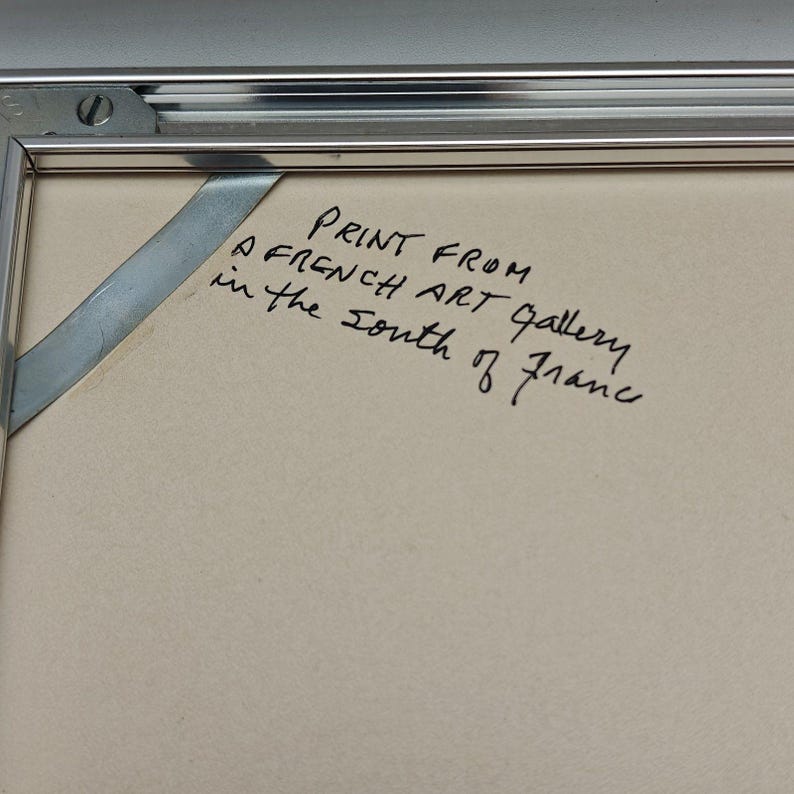 PRINT FROM
A FRENCH ART Gallery
in the South of France